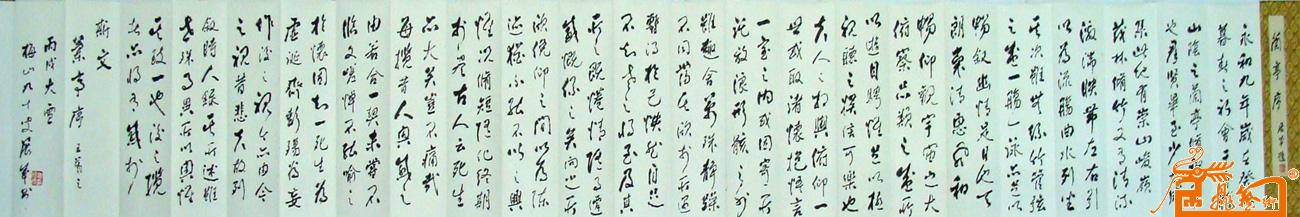 蘭亭序
永和九年歲在癸丑
暮春之初會于會稽
山陰之蘭亭脩禊事
也群賢畢至少長咸
集此地有崇山峻嶺
茂林脩竹又有清流
激湍映帶左右引
以為流觴曲水列坐
其次雖無絲竹管弦
之盛一觴一詠亦足以
暢敘幽情是日也天
朗氣清惠風和
暢仰觀宇宙之大
俯察品類之盛所
以遊目騁懷足以極
視聽之娛信可樂也
夫人之相與俯仰一
世或取諸懷抱悟言
一室之內或因寄所
託放浪形骸之外
雖趣舍萬殊靜躁
不同當其欣於所遇
暫得於己快然自足
不知老之將至及其
所之既惓情隨事遷
感慨係之矣向之所
欣俛仰之間以為陳
迹猶不能不以之興
懷況脩短隨化終期
於盡古人云死生
亦大矣豈不痛哉
每攬昔人興感之
由若合一契未嘗不
臨文嗟悼不能喻之
於懷固知一死生為
虛誕齊彭殤為妄
作後之視今亦由今
之視昔悲夫故列
敘時人錄其所述雖
世殊事異所以興懷
其致一也後之攬
者亦將有感於
斯文
蘭亭序 王羲之
丙戌大雪
梅山九十叟